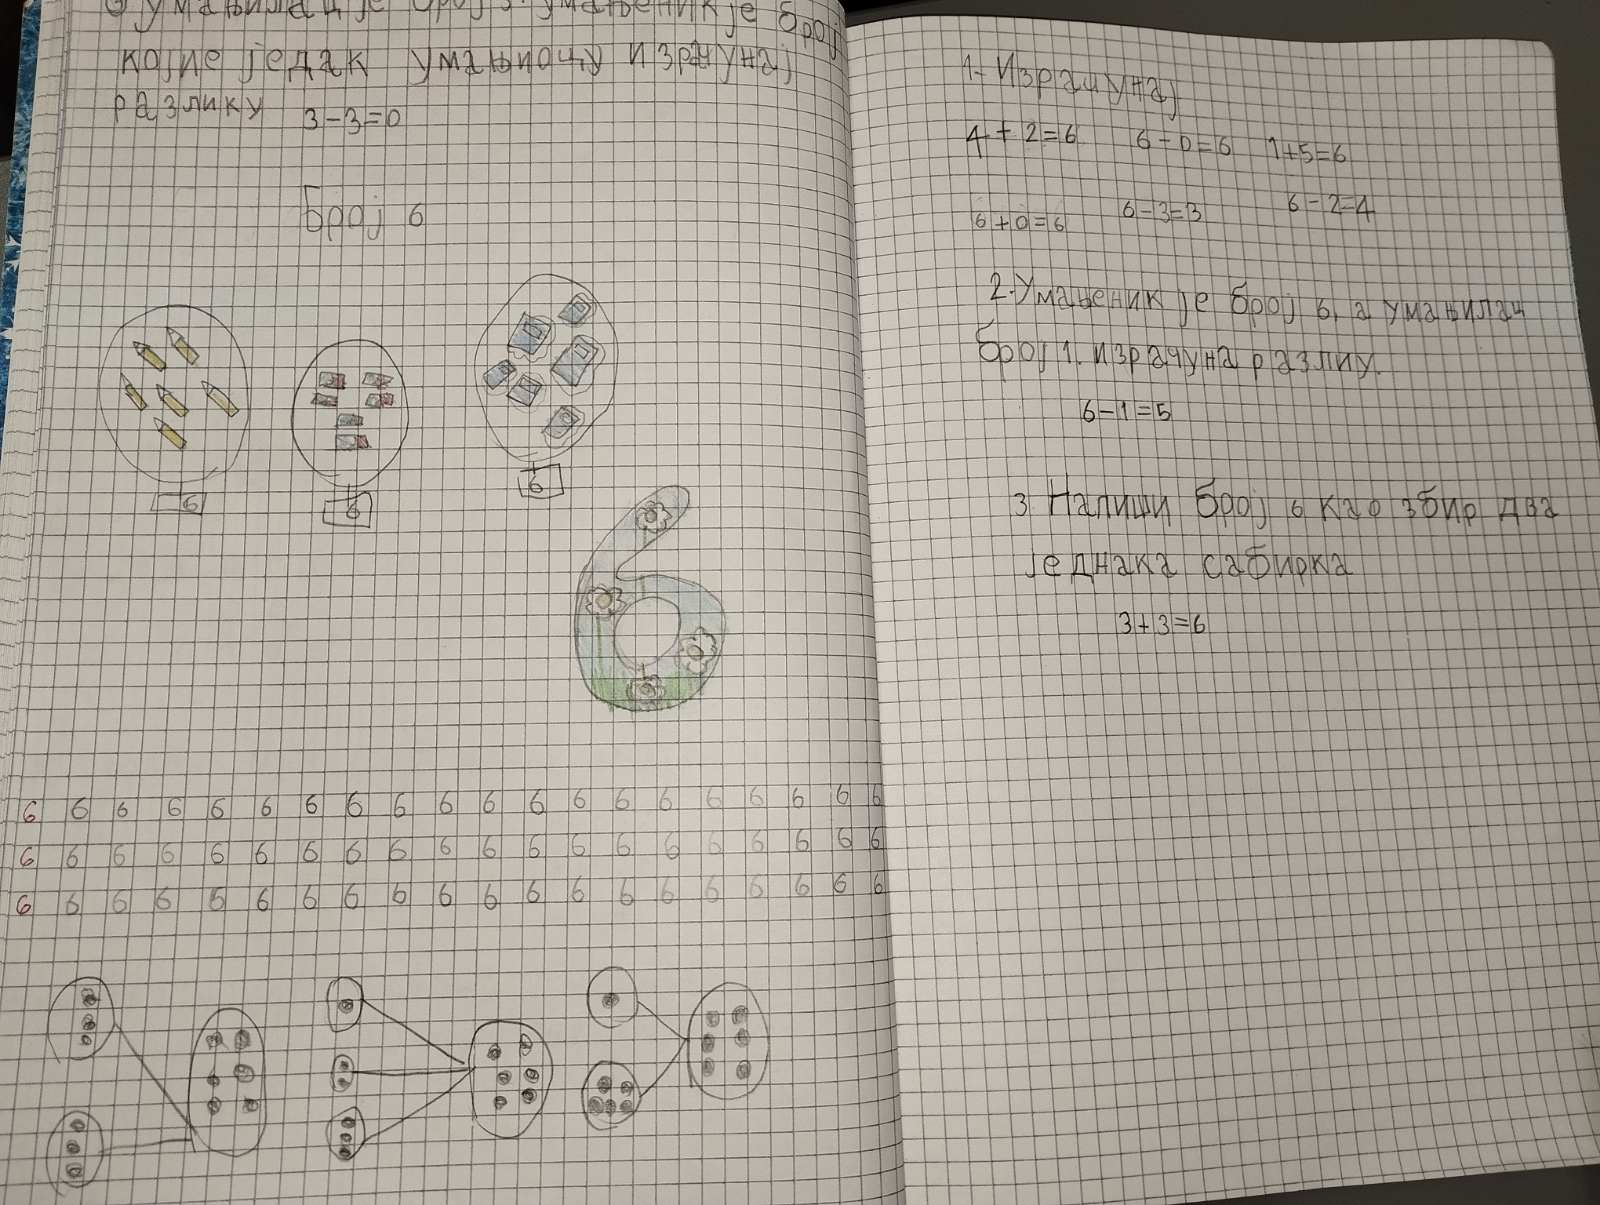 умањилац је број 3. умањеник је број
којие једак умањиоцу израчунај
разлику 3-3=0
Број 6
6 6 6
6 6 6 6 6 6 6 6 6 6 6 6 6 6 6 6 6 6 6 6
6 6 6 6 6 6 6 6 6 6 6 6 6 6 6 6 6 6 6 6
6 6 6 6 6 6 6 6 6 6 6 6 6 6 6 6 6 6 6 6
1. Израчунај
4+2=6 6-0=6 1+5=6
6+0=6 6-3=3 6-2=4
2. Умањеник је број 6, а умањилац
број 1. израчуна разлиу.
6-1=5
3. Напиши број 6 као збир два
једнака сабирка
3+3=6